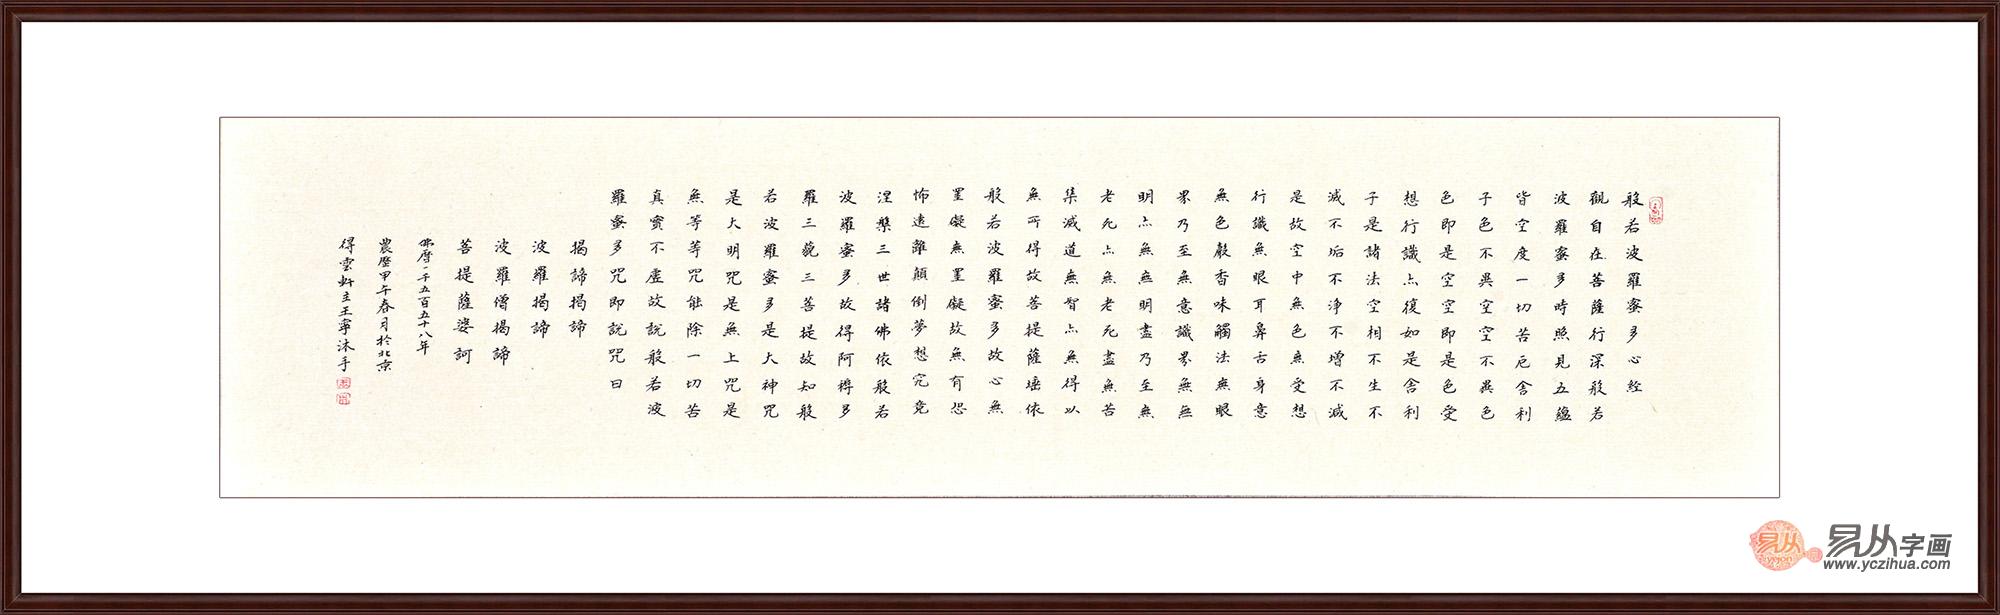 般若波羅蜜多心経
觀自在菩薩行深般若
波羅蜜多時照見五蘊
皆空度一切苦厄舍利
子色不異空空不異色
色即是空空即是色受
想行識亦復如是舍利
子是諸法空相不生不
滅不垢不淨不增不減
是故空中無色無受想
行識無眼耳鼻舌身意
無色聲香味觸法無眼
界乃至無意識界無無
明亦無無明盡乃至無
老死亦無老死盡無苦
集滅道無智亦無得以
無所得故菩提薩埵依
般若波羅蜜多故心無
罣礙無罣礙故無有恐
怖遠離顛倒夢想究竟
涅槃三世諸佛依般若
波羅蜜多故得阿耨多
羅三藐三菩提故知般
若波羅蜜多是大神咒
是大明咒是無上咒是
無等等咒能除一切苦
真實不虛故說般若波
羅蜜多咒即說咒曰
揭諦揭諦
波羅揭諦
波羅僧揭諦
菩提薩婆訶
佛曆二千五百五十八年
農曆甲午春月於北京
得雲軒主王寧沐手
易从
yiejon
易从字画
www.yczihua.com